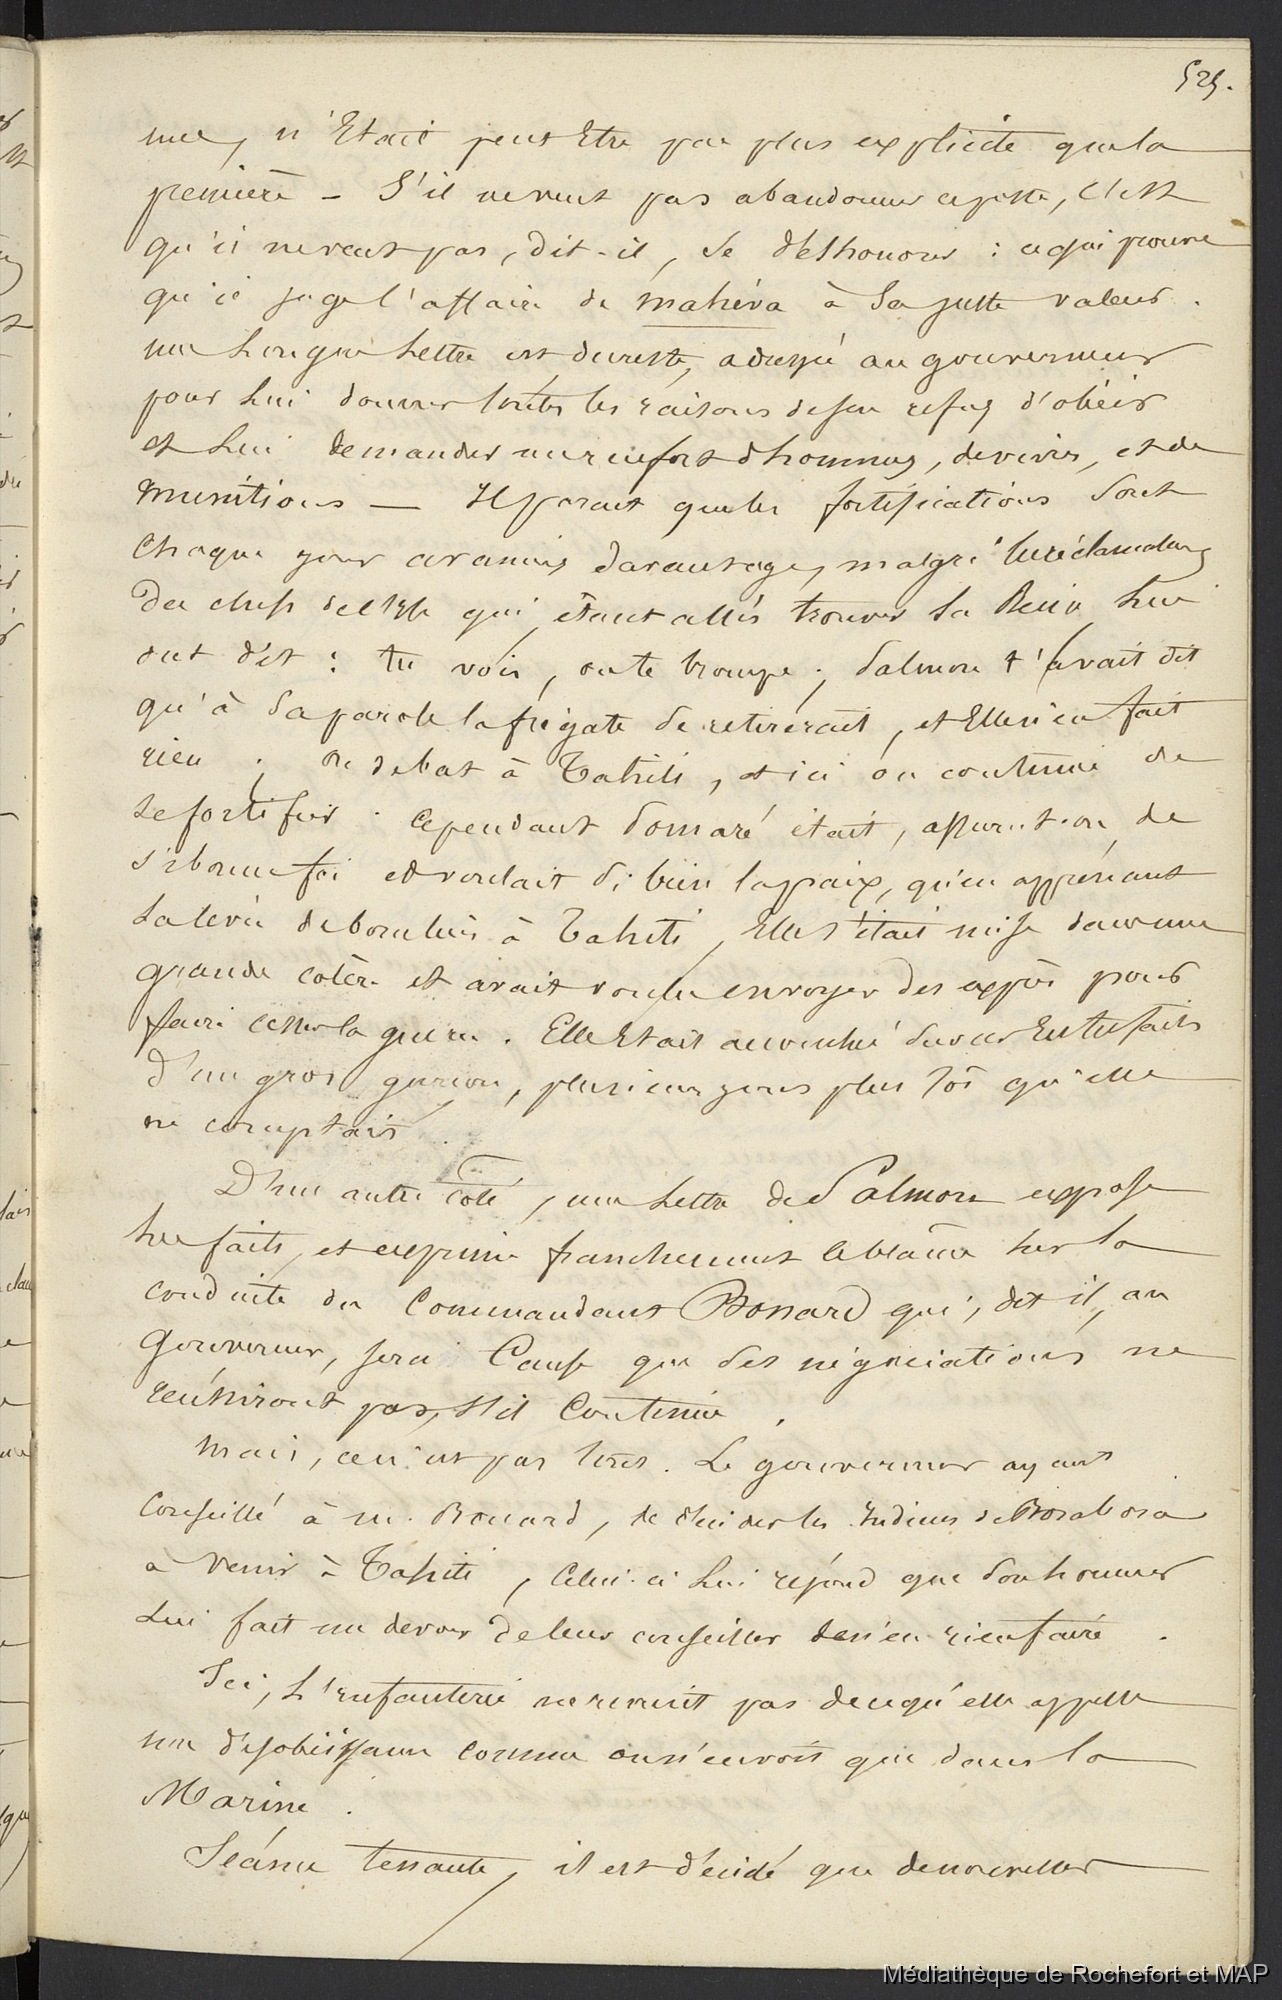 525.
me, n'Etait peut Etre pas plus explicite que la
première — S'il ne veut pas abandonner ce poste, c'est
qu'il ne veut pas, dit-il, se déshonorer : ce qui prouve
qu'il juge l'affaire de Mahéna à sa juste valeur.
une longue lettre est, du reste, adressée au gouverneur
pour lui donner toutes les raisons de son refus d'obéir
et lui demander un renfort d'hommes, de vivres, et de
munitions — Il parait que les fortifications sont
chaque jour avancées davantage, malgré les réclamations
des chefs de l'Isle qui, étant allés trouver la Reine, lui
ont dit : tu vois, on te trompe ; Salmon t'avait dit
qu'à sa parole la frégate se retirerait, et Elle n'en fait
rien ; On se bat à Tahiti, et ici on continue de
se fortifier. Cependant Pomaré était, assure-t-on, de
si bonne foi et voulait si bien la paix, qu'en apprenant
la levée de boucliers à Tahiti, Elle s'était mise dans une
grande colère et avait voulu envoyer des exprès pour
faire cesser la guerre. Elle Etait accouchée sur ces Entrefaits
d'un gros garçon, plusieurs jours plus tôt qu'elle
ne comptait.
D'un autre côté, une lettre de Salmon expose
les faits, et exprime franchement le blâme sur la
conduite du Commandant Bonard qui, dit il, au
Gouverneur, sera Cause que des négociations ne
réussiront pas, s'il Continue.
Mais, ce n'est pas tout. Le gouverneur ayant
conseillé à M. Bonard, de décider les Indiens de Borabora
à venir à Tahiti, celui-ci lui répond que son honneur
lui fait un devoir de leur conseiller de n'en rien faire.
Ici, l'Infanterie ne revient pas de ce qu'elle appelle
une désobéissance comme on n'en voit que dans la
Marine.
Séance tenante, il est décidé que de nouvelles